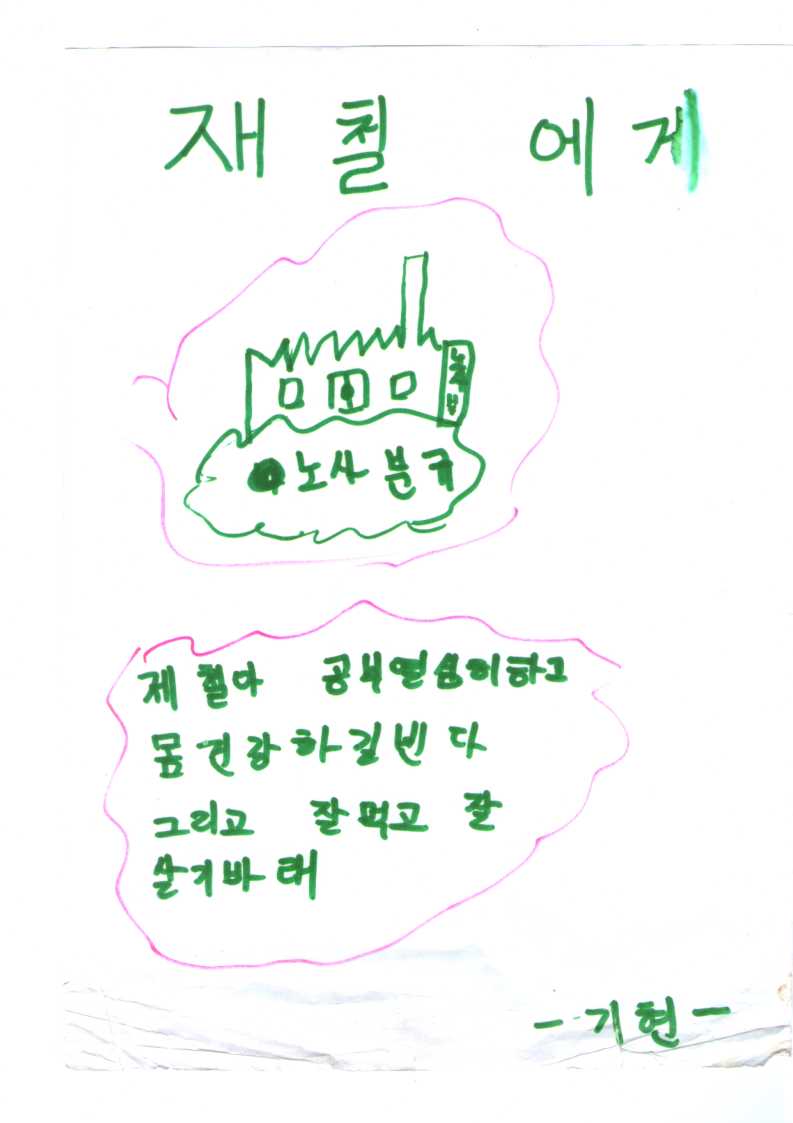 재철 에게
노사분규
제철아 공부열심히하고
몸건강하길빈다
그리고 잘먹고 잘
살기바래
-기현-